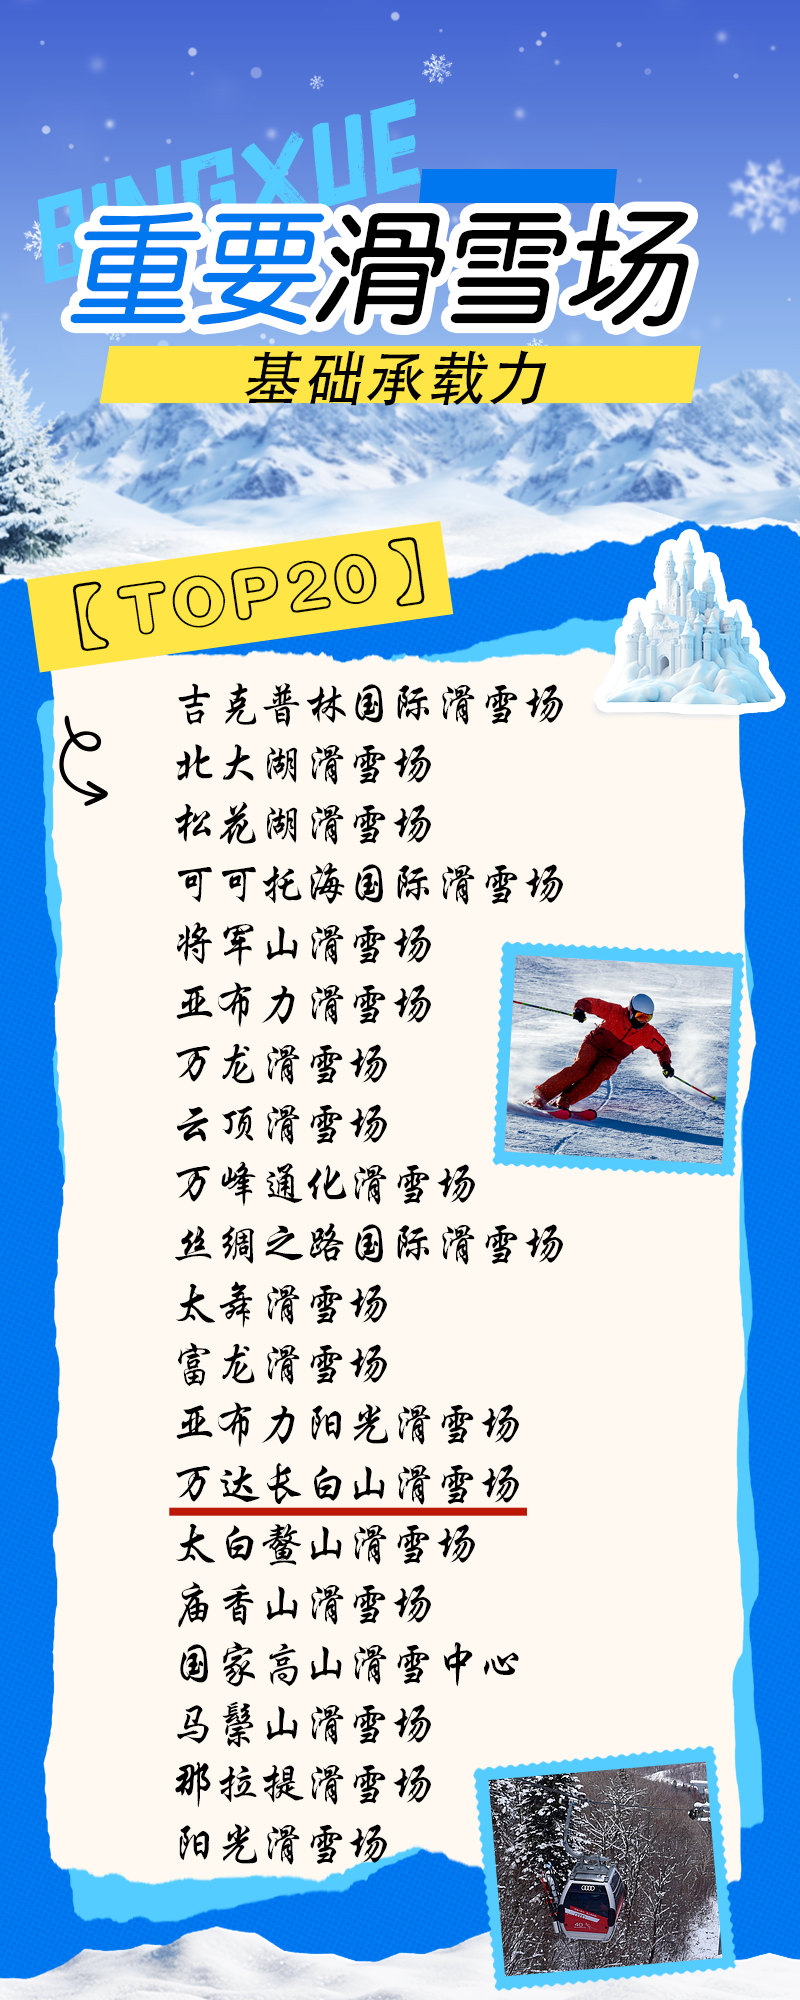 BINGXUE
重要滑雪场
基础承载力
【TOP20】
吉克普林国际滑雪场
北大湖滑雪场
松花湖滑雪场
可可托海国际滑雪场
将军山滑雪场
亚布力滑雪场
万龙滑雪场
云顶滑雪场
万峰通化滑雪场
丝绸之路国际滑雪场
太舞滑雪场
富龙滑雪场
亚布力阳光滑雪场
万达长白山滑雪场
太白鳌山滑雪场
庙香山滑雪场
国家高山滑雪中心
马鬃山滑雪场
那拉提滑雪场
阳光滑雪场
40